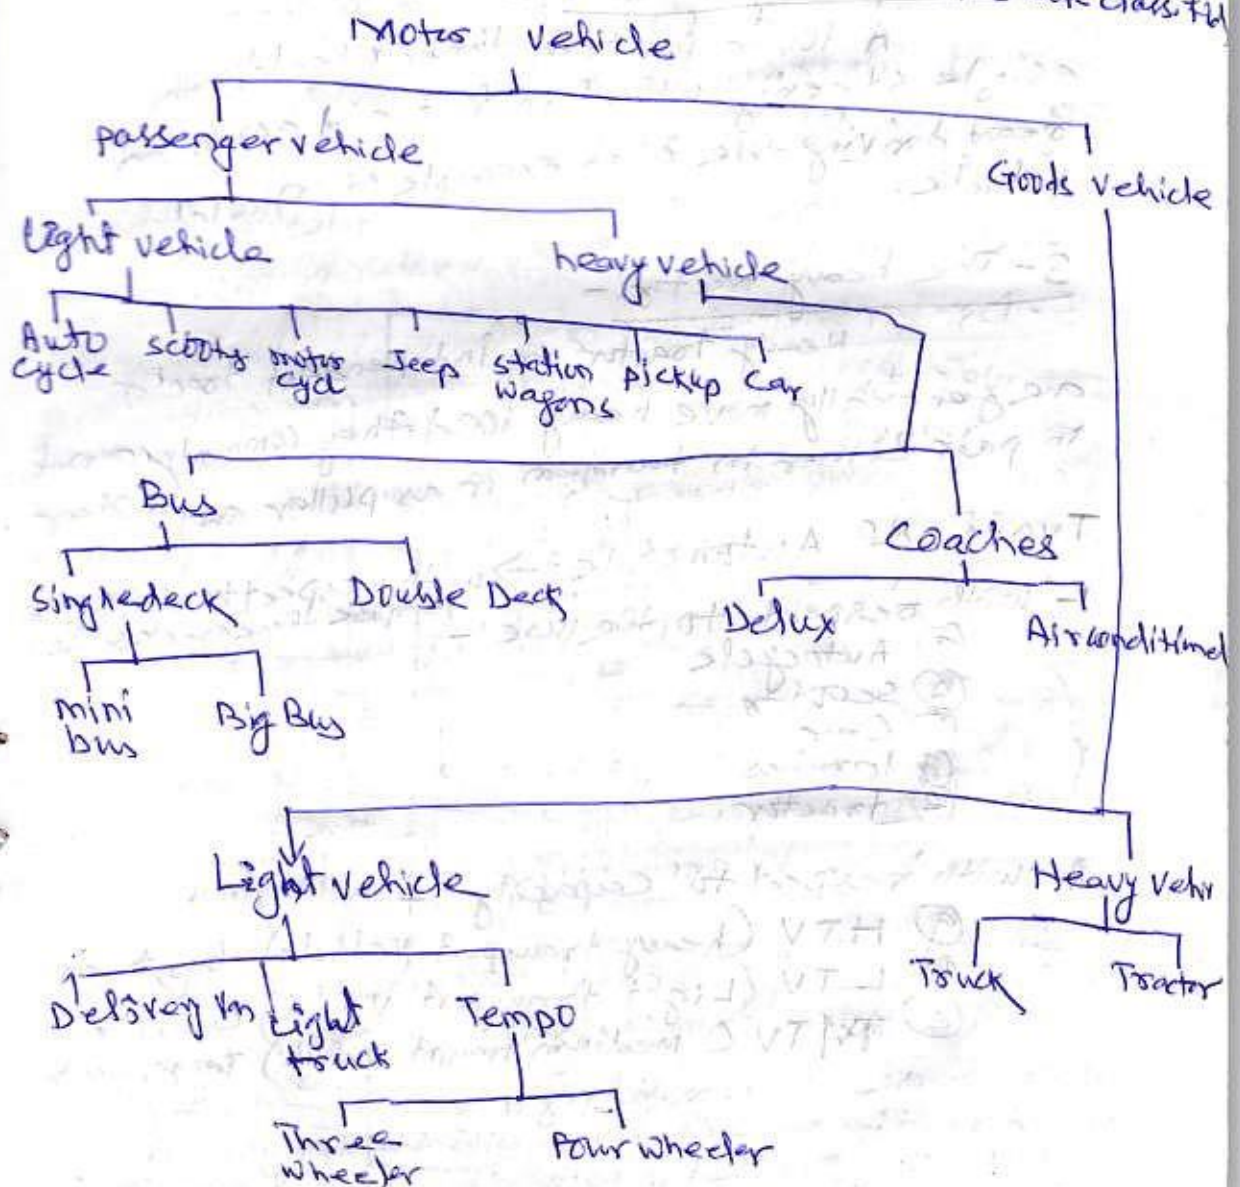 Motor vehicle
passenger vehicle
Goods vehicle
light vehicle
heavy vehicle
Auto
cycle
scooty
motor
cycl
Jeep
station
wagons
pickup
car
Bus
Coaches
Singledeck
Double Deck
Delux
Airconditined
mini
bus
Big Bus
Light vehicle
Heavy vehi
Delivery vn
Light
truck
Tempo
Truck
Tractor
Three
wheeler
Four wheeler